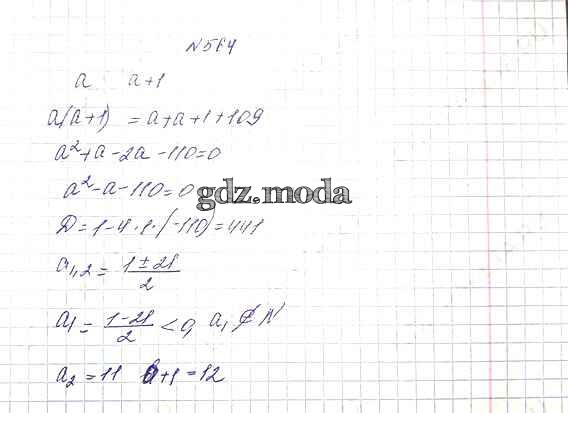 N 564
a a+1
a(a+1) = a+a+1+109
a²+a-2a-110=0
a²-a-110=0
gdz.moda
D=1-4·1·(-110)=441
a₁,₂ = (1±21)/2
a₁ = (1-21)/2 <0, a₁ ∉ N
a₂ = 11 a+1 = 12